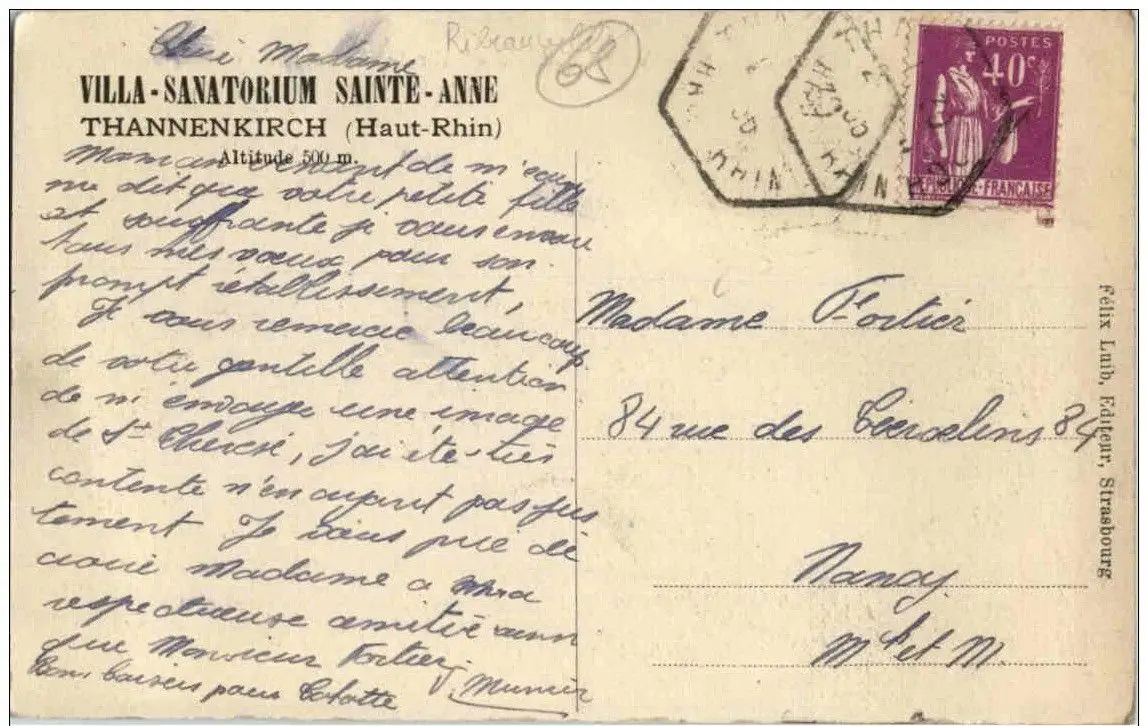 Chère Madame
Ribeauvillé
68
VILLA-SANATORIUM SAINTE-ANNE
THANNENKIRCH (Haut-Rhin)
Altitude 500 m.
Maman venant de m'
me dit que votre petite fille
et souffrante je vous envoie
tous mes vœux pour son
prompt rétablissement,
Je vous remercie beaucoup
de votre gentille attention
de m'envoyer une image
de Ste Therese, j'ai été très
contente n'en ayant pas jus
tement Je vous prie de
croire Madame a ma
respectueuse amitié ainsi
que Monsieur Fortier
Bons baisers pour
J. Munier
POSTES
40c
REPUBLIQUE-FRANÇAISE
RHIN
Madame Fortier
84 rue des 84
Nancy
Mthe et M.
Félix Luib, Editeur, Strasbourg